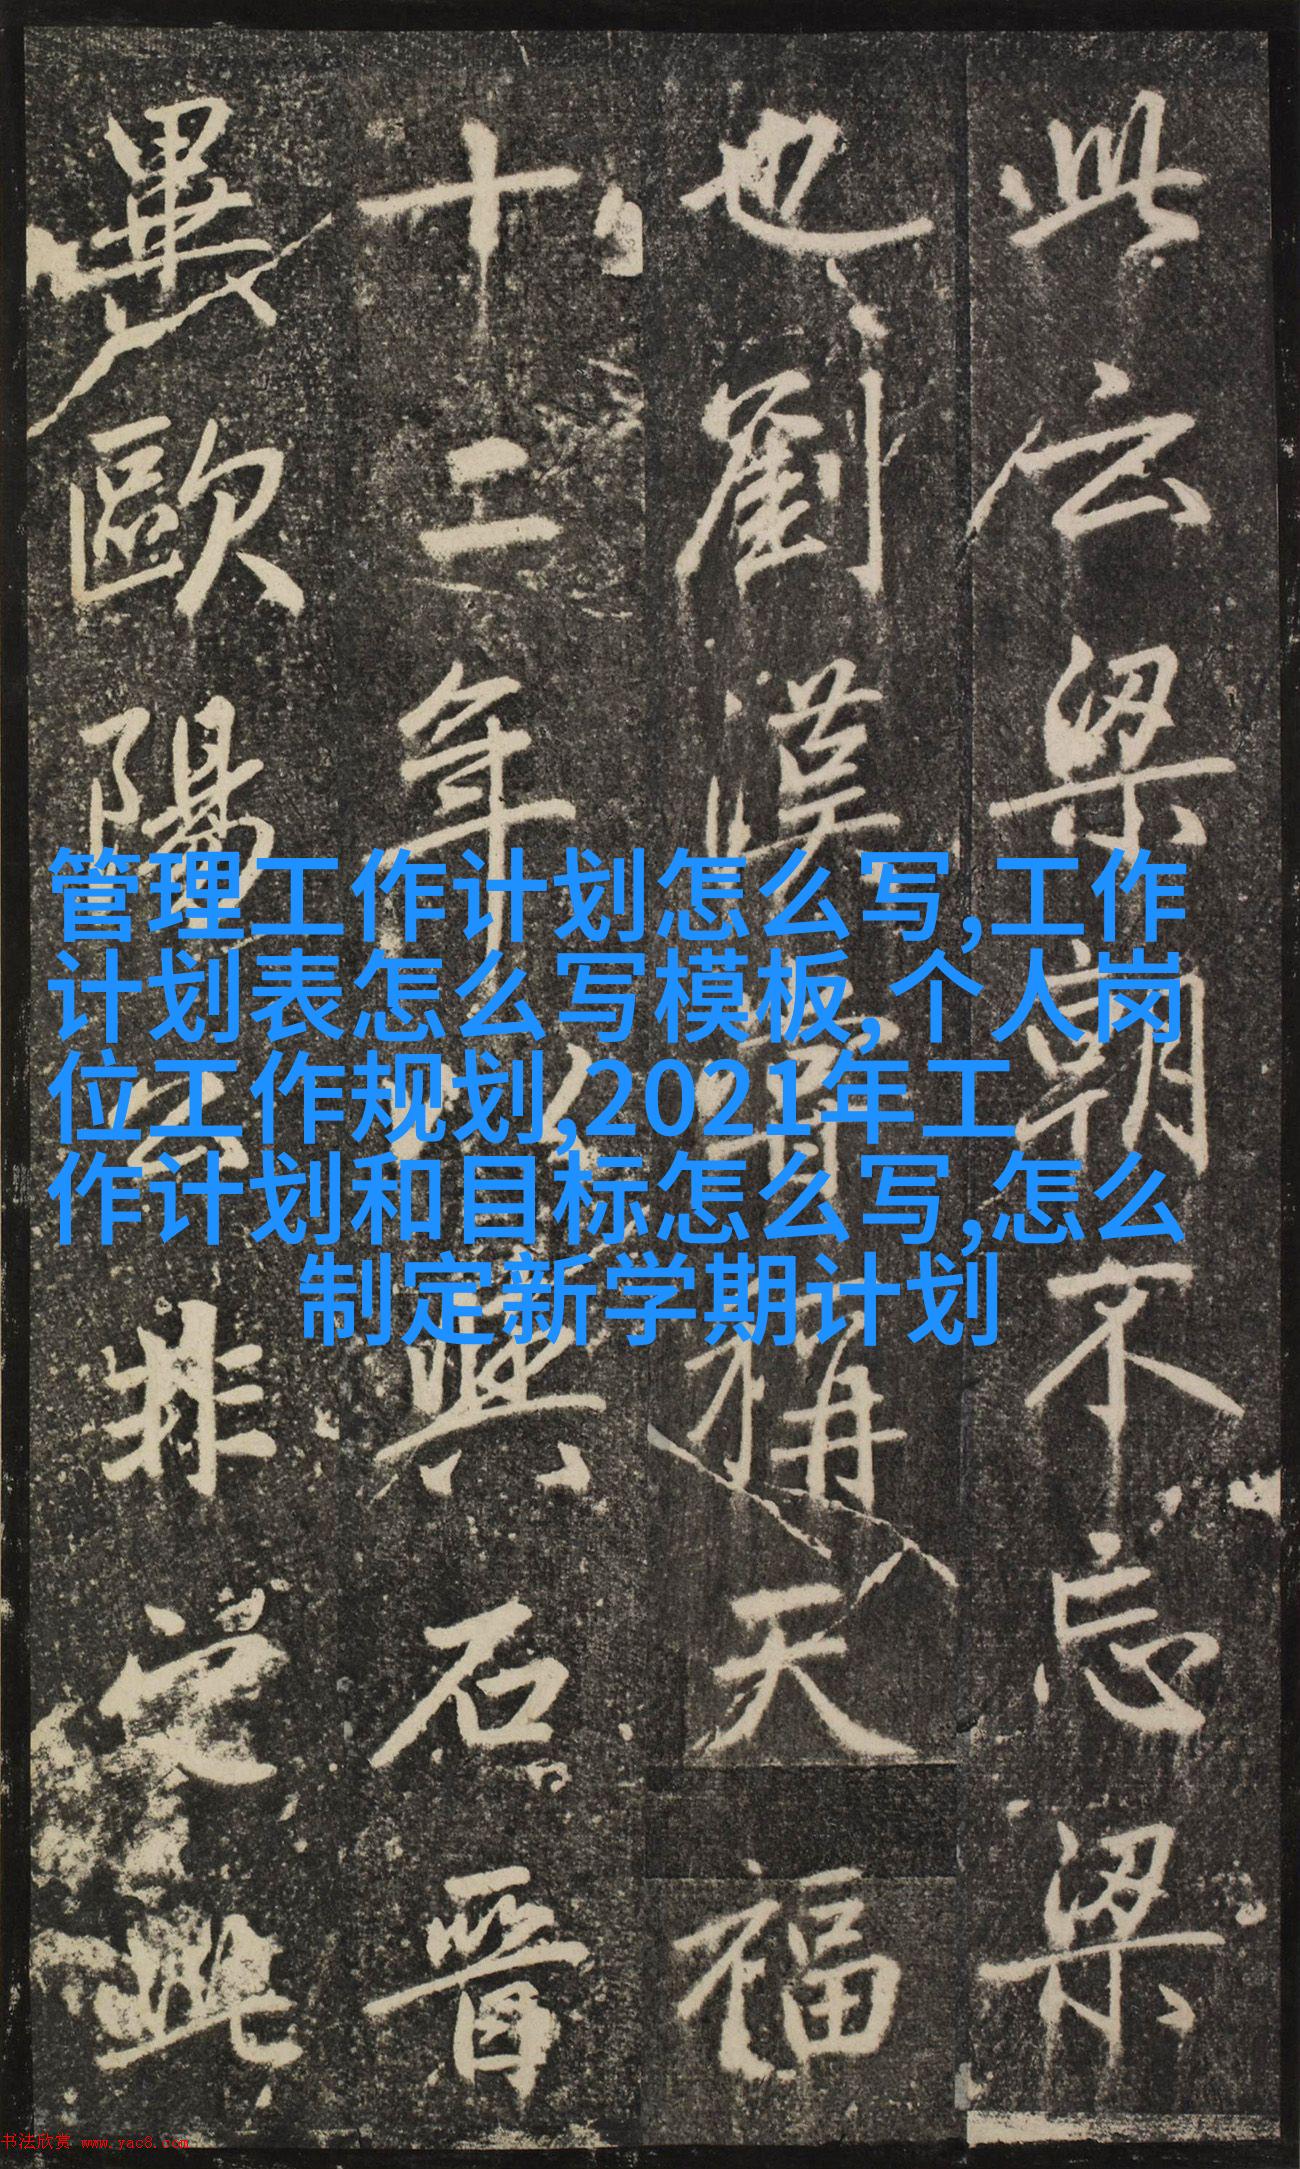 此云梁朝不忘梁
也劉漢稱天福
十二年與石晉
畢歐陽公非此
管理工作计划怎么写,工作
计划表怎么写模板,个人岗
位工作规划,2021年工
作计划和目标怎么写,怎么
制定新学期计划
书法欣赏 www.yac8.com